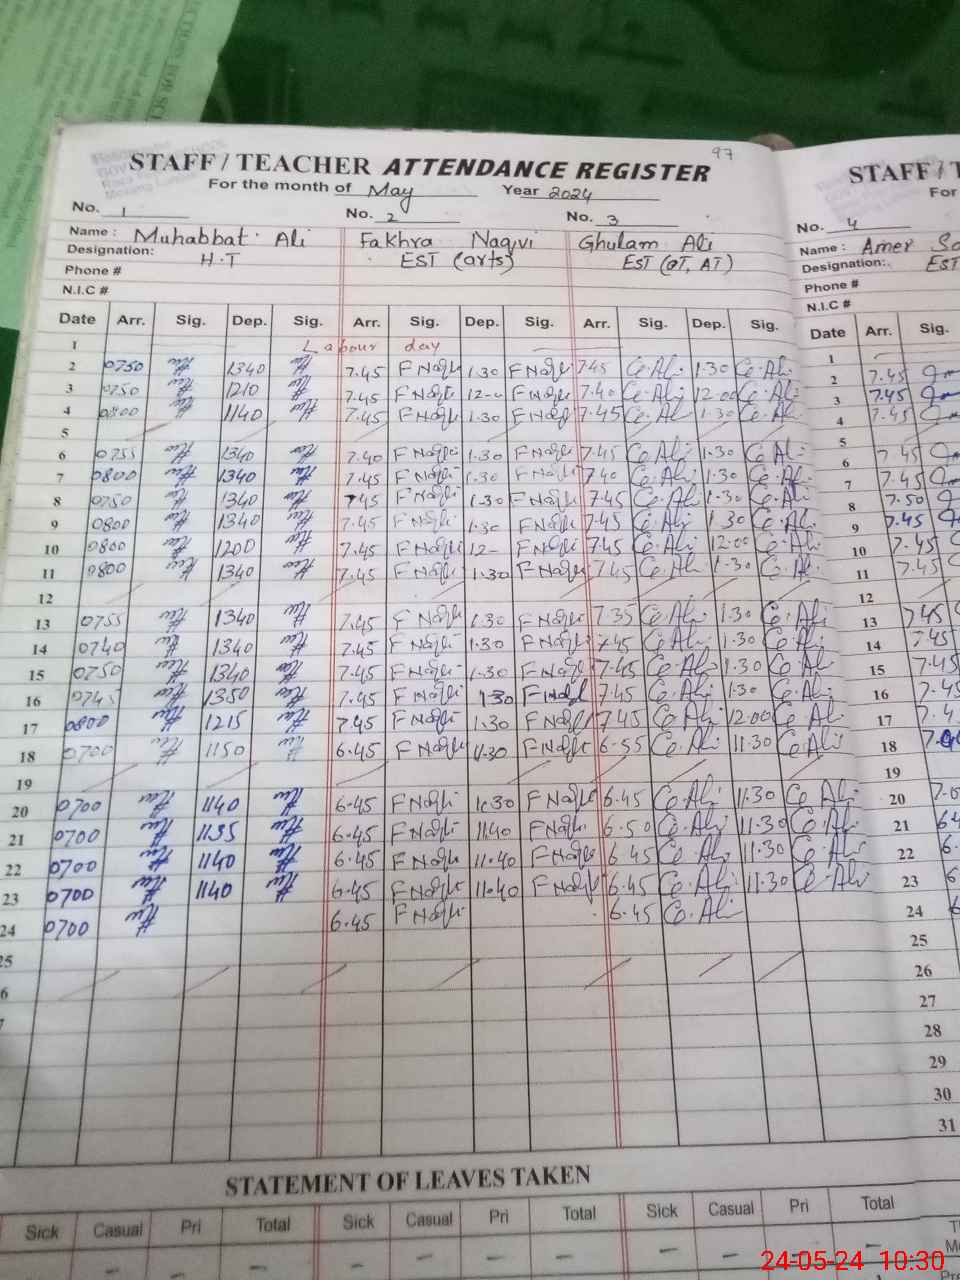 97
STAFF / TEACHER ATTENDANCE REGISTER
For the month of May Year 2024
No. 1 No. 2 No. 3
Name : Muhabbat Ali Fakhra Naqvi Ghulam Ali
Designation: H.T EST (arts) EST (OT, AT)
Phone #
N.I.C #
Date Arr. Sig. Dep. Sig. Arr. Sig. Dep. Sig. Arr. Sig. Dep. Sig.
1 Labour day
2 0750 1340 7.45 F Naqvi 1.30 F Naqvi 7.45 G.Ali 1.30 G.Ali
3 0750 1210 7.45 F Naqvi 12- F Naqvi 7.40 G.Ali 12.00 G.Ali
4 0800 1140 7.45 F Naqvi 1.30 F Naqvi 7.45 G.Ali 1.30 G.Ali
5
6 0755 1340 7.40 F Naqvi 1.30 F Naqvi 7.45 G.Ali 1.30 G.Ali
7 0800 1340 7.45 F Naqvi 1.30 F Naqvi 7.40 G.Ali 1.30 G.Ali
8 0750 1340 7.45 F Naqvi 1.30 F Naqvi 7.45 G.Ali 1.30 G.Ali
9 0800 1340 7.45 F Naqvi 1.30 F Naqvi 7.45 G.Ali 1.30 G.Ali
10 0800 1200 7.45 F Naqvi 12- F Naqvi 7.45 G.Ali 12.00 G.Ali
11 0800 1340 7.45 F Naqvi 1.30 F Naqvi 7.45 G.Ali 1.30 G.Ali
12
13 0755 1340 7.45 F Naqvi 1.30 F Naqvi 7.35 G.Ali 1.30 G.Ali
14 0740 1340 7.45 F Naqvi 1.30 F Naqvi 7.45 G.Ali 1.30 G.Ali
15 0750 1340 7.45 F Naqvi 1.30 F Naqvi 7.45 G.Ali 1.30 G.Ali
16 0745 1350 7.45 F Naqvi 1.30 F Naqvi 7.45 G.Ali 1.30 G.Ali
17 0800 1215 7.45 F Naqvi 1.30 F Naqvi 7.45 G.Ali 12.00 G.Ali
18 0700 1150 6.45 F Naqvi 11.30 F Naqvi 6.55 G.Ali 11.30 G.Ali
19
20 0700 1140 6.45 F Naqvi 11.30 F Naqvi 6.45 G.Ali 11.30 G.Ali
21 0700 1135 6.45 F Naqvi 11.40 F Naqvi 6.50 G.Ali 11.30 G.Ali
22 0700 1140 6.45 F Naqvi 11.40 F Naqvi 6.45 G.Ali 11.30 G.Ali
23 0700 1140 6.45 F Naqvi 11.40 F Naqvi 6.45 G.Ali 11.30 G.Ali
24 0700 6.45 F Naqvi 6.45 G.Ali
STATEMENT OF LEAVES TAKEN
Sick Casual Pri Total Sick Casual Pri Total Sick Casual Pri Total
STAFF /
For
No. 4
Name : Amer
Designation: EST
Phone #
N.I.C #
Date Arr. Sig.
1
2 7.45
3 7.45
4 7.45
5
6 7.45
7 7.45
8 7.50
9 7.45
10 7.45
11 7.45
12
13 7.45
14 7.45
15 7.45
16 7.45
17
18
19
20
21
22
23
24
25
26
27
28
29
30
31
24-05-24 10:30